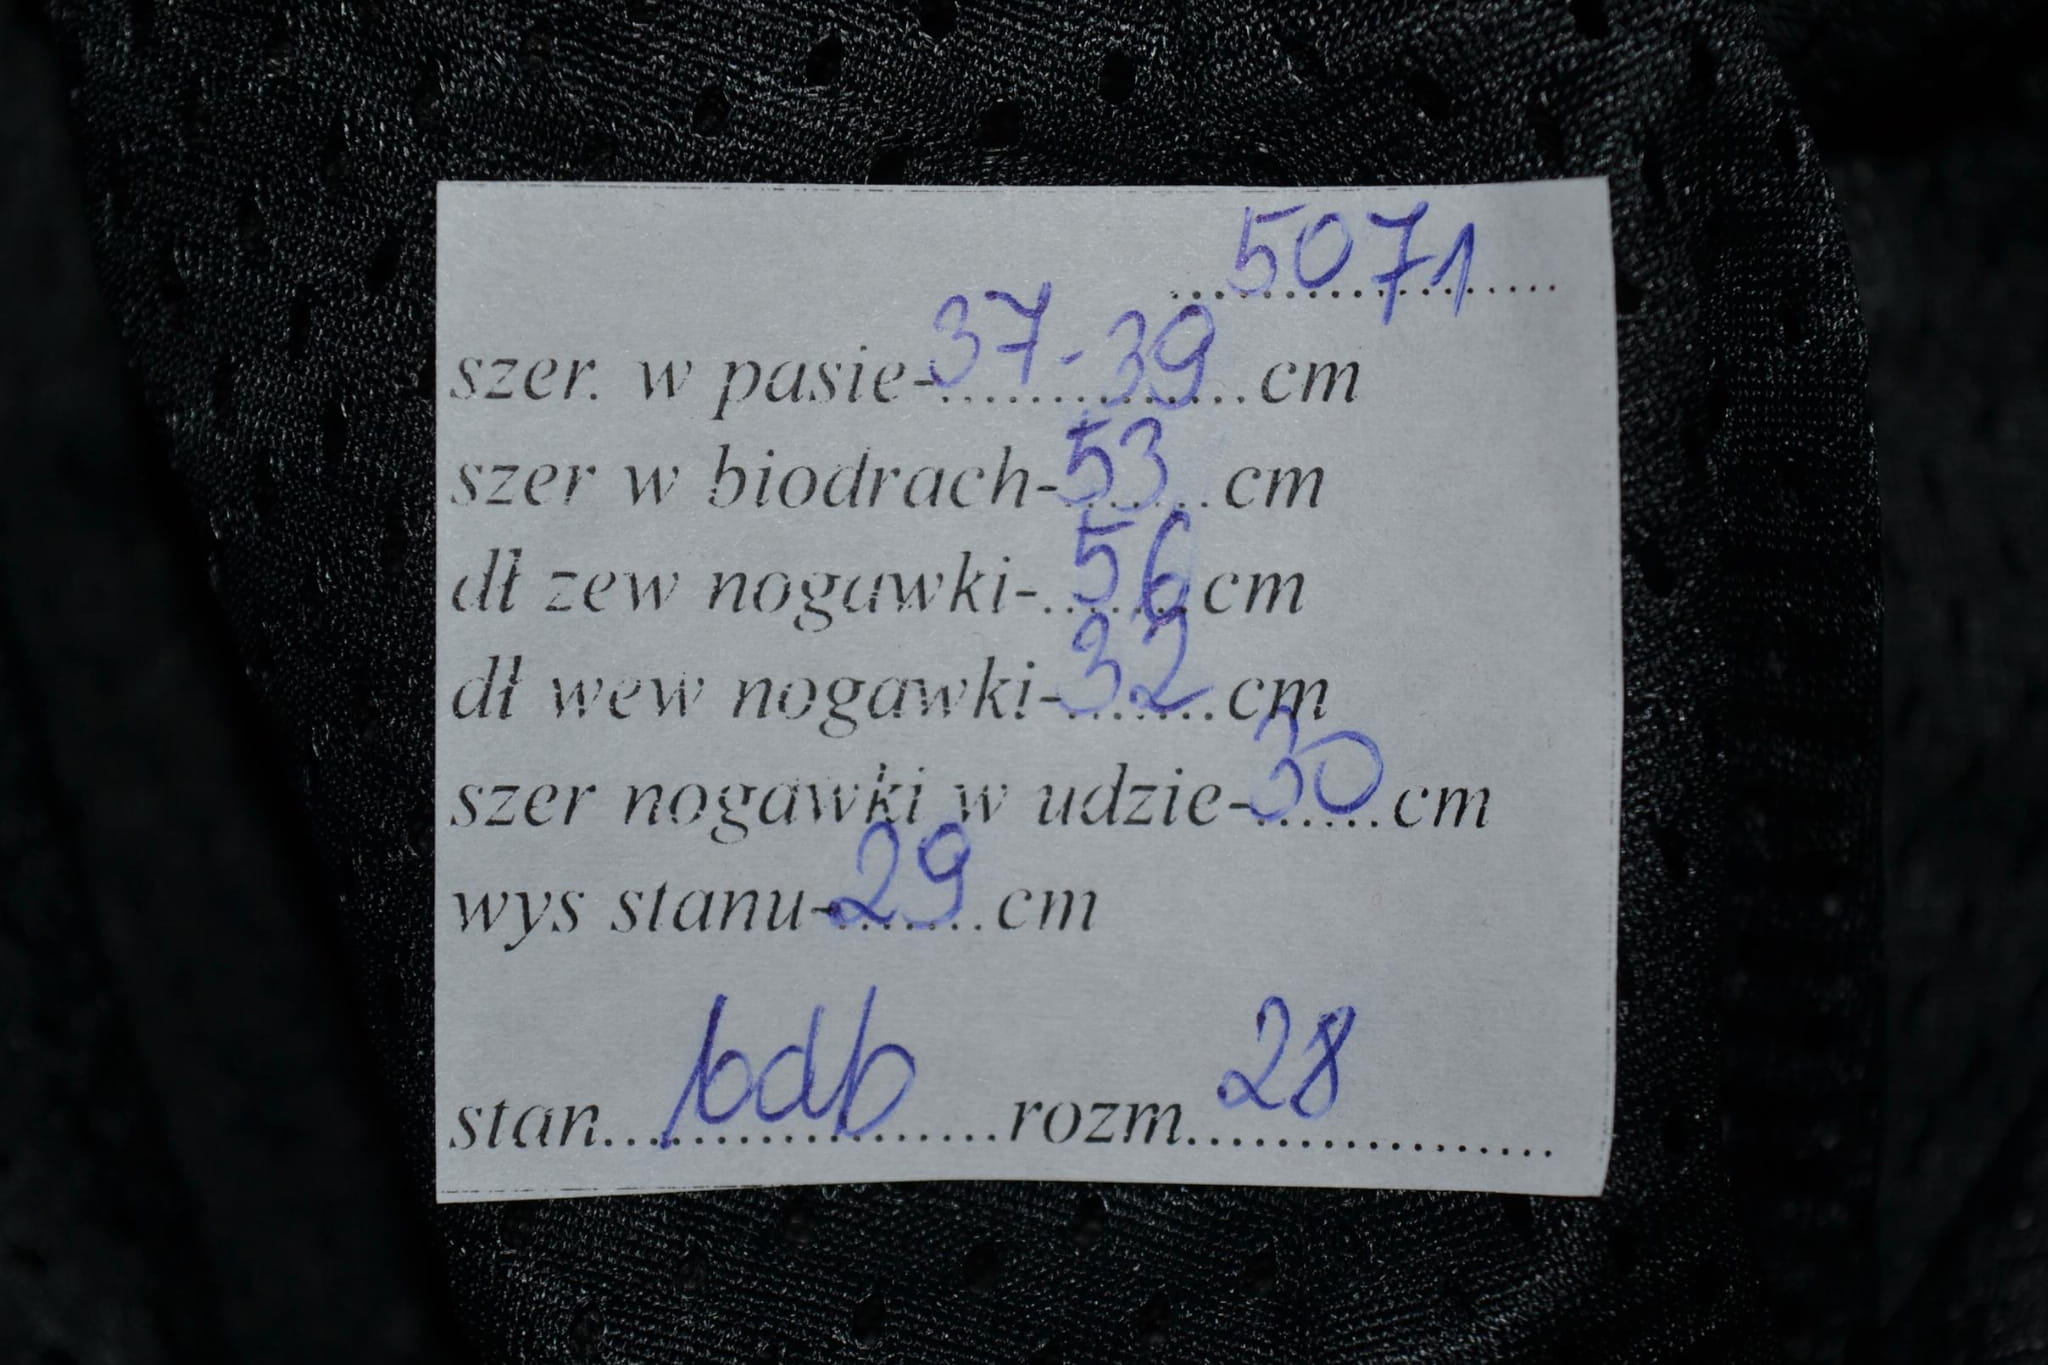 5071
szer. w pasie-37-39cm
szer w biodrach-53cm
dł zew nogawki-56cm
dł wew nogawki-32cm
szer nogawki w udzie-30cm
wys stanu-29cm
stan bdb rozm 28